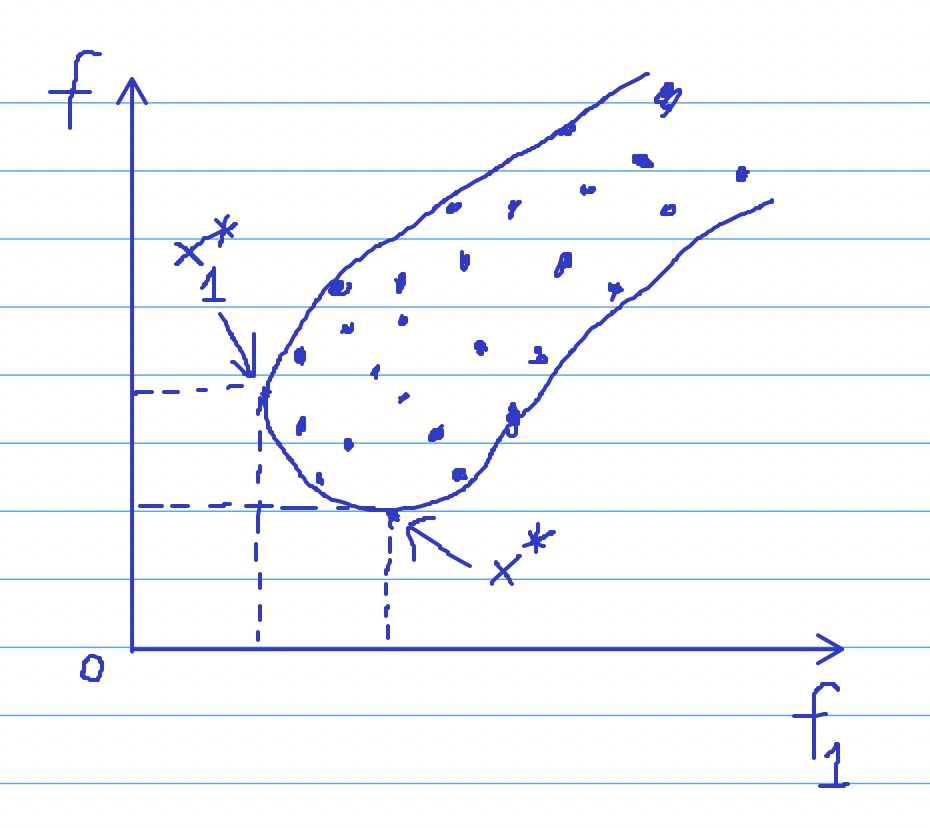 f
x*
1
x*
0
f
1